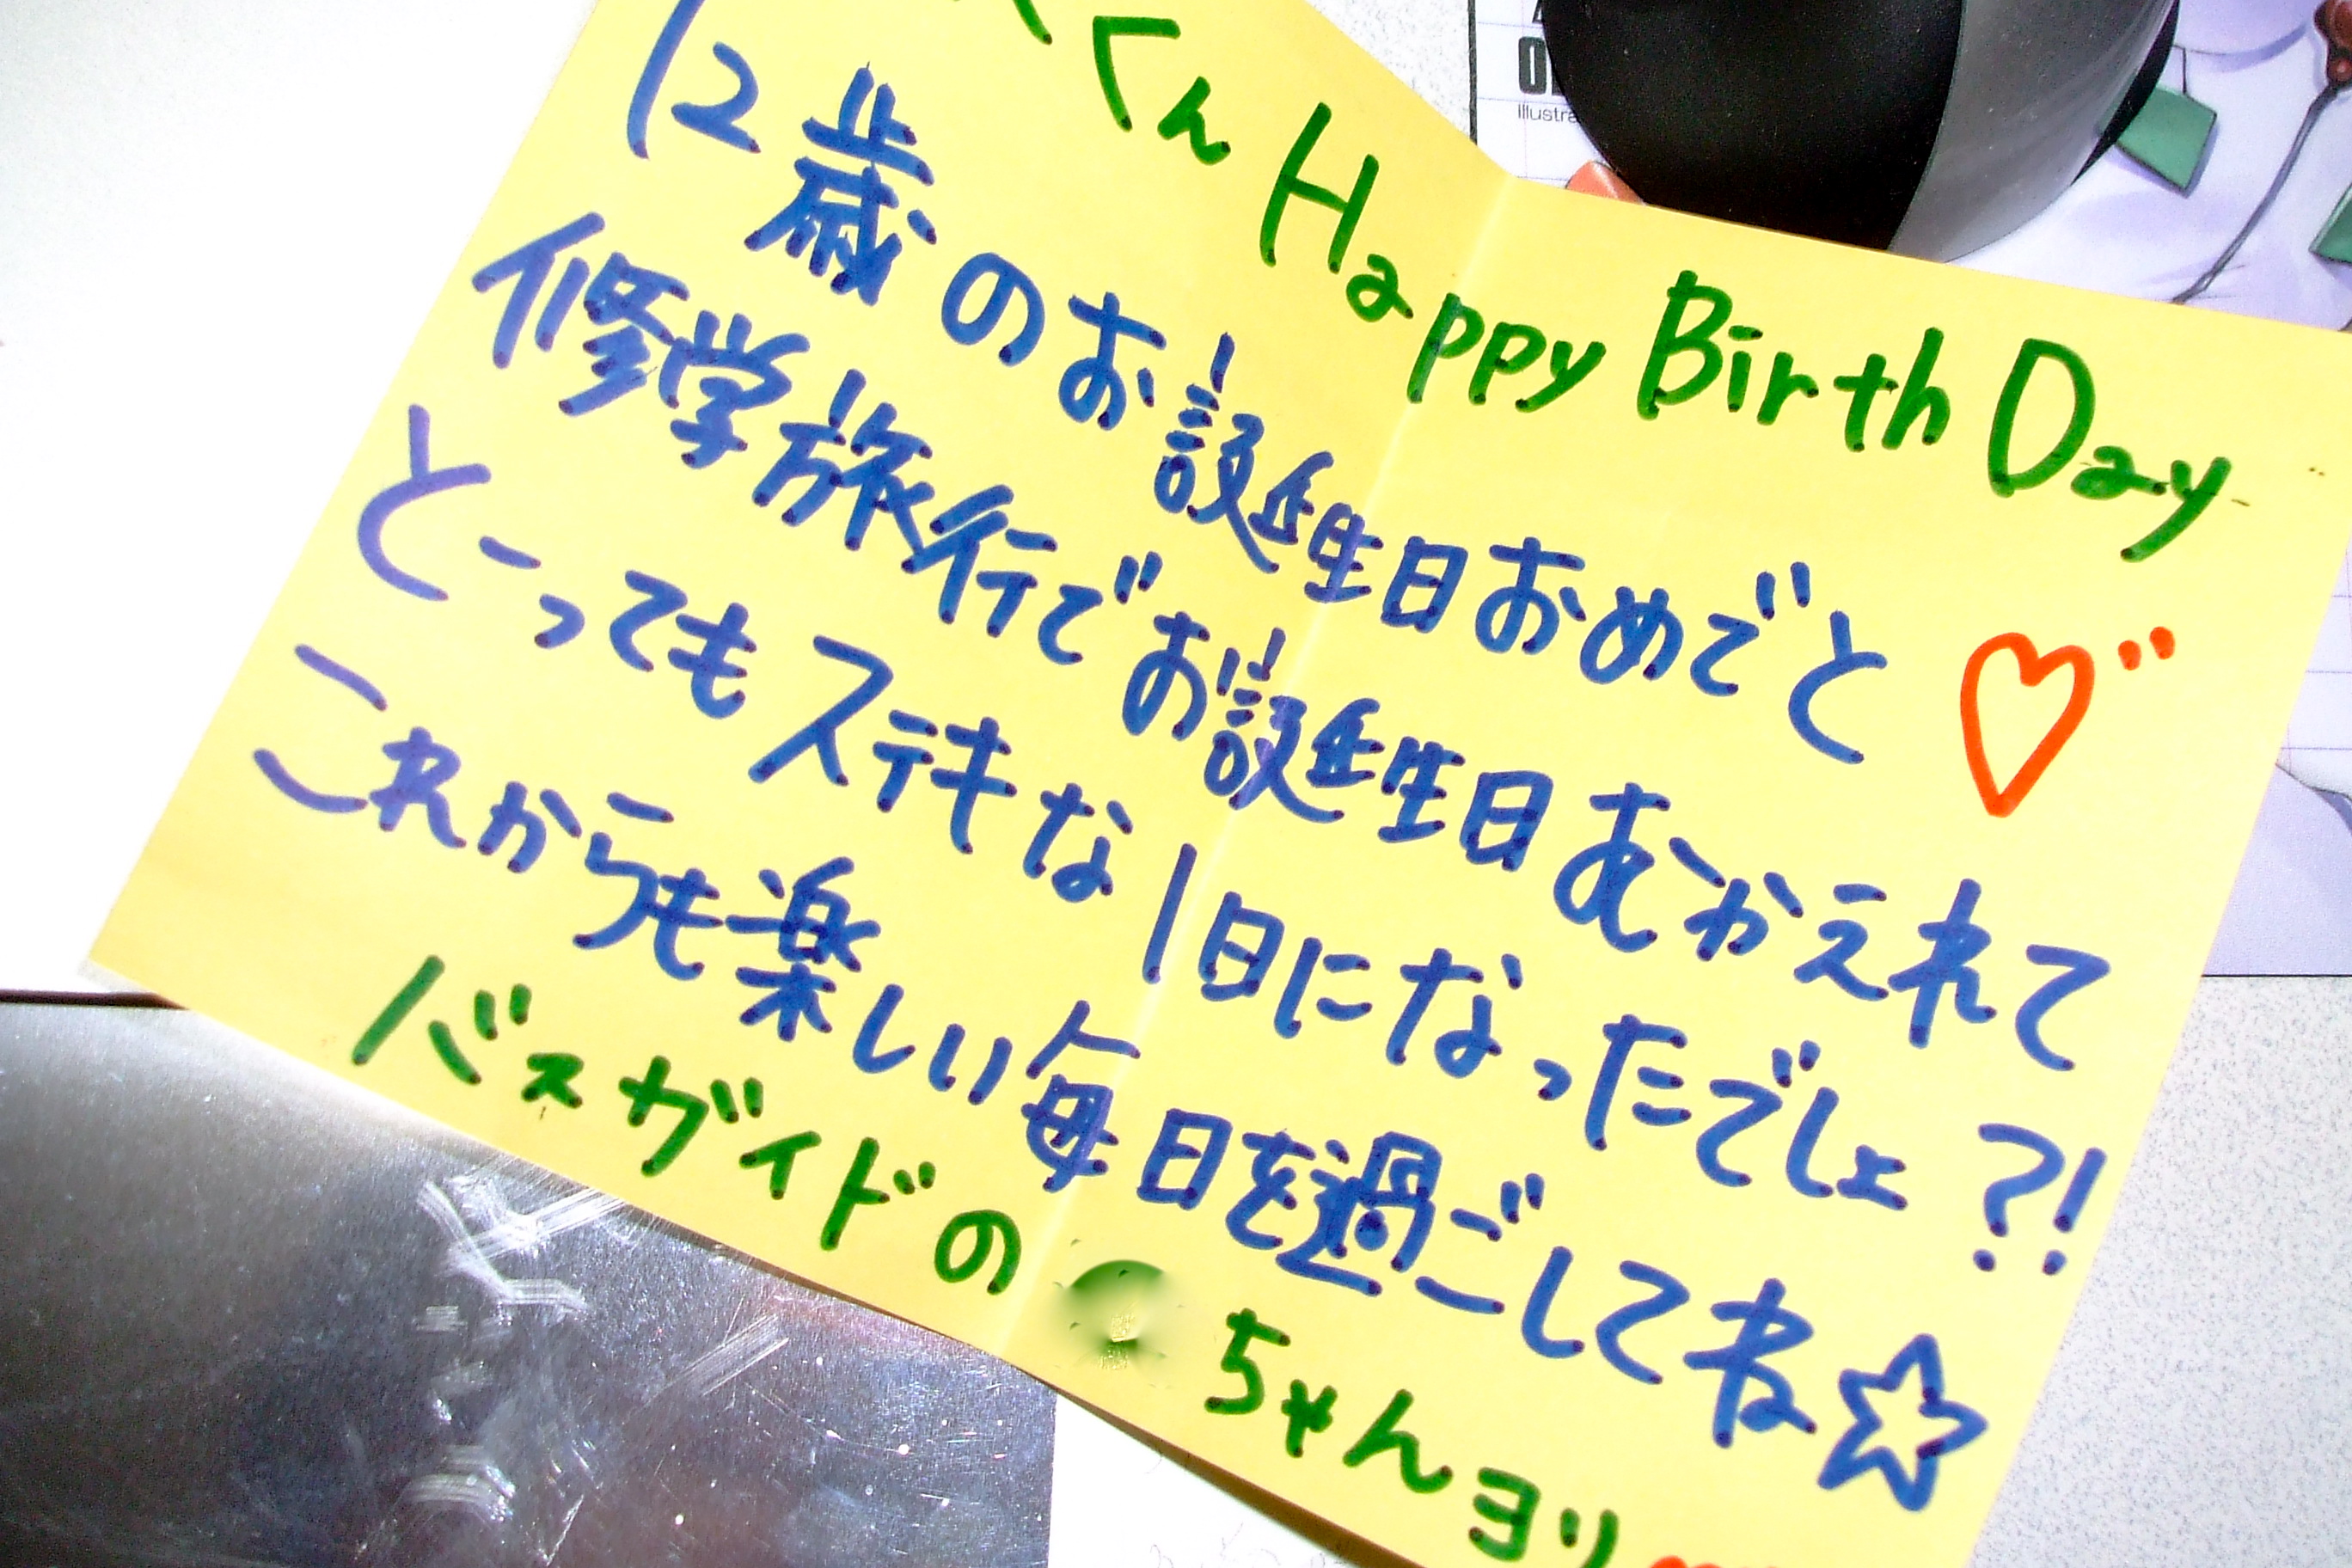 くん Happy Birth Day
12歳のお誕生日おめでと♡"
修学旅行でお誕生日むかえれて
とーってもステキな1日になったでしょ?!
これからも楽しい毎日を過ごしてね☆
バスガイドの
ちゃんヨリ
Illustra